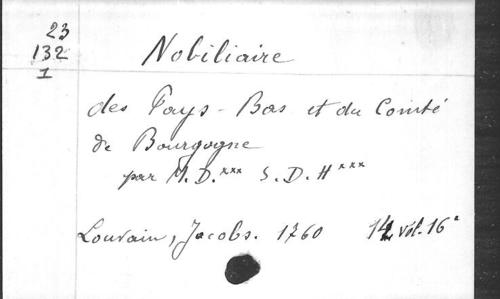 23
132
1
Nobiliaire
des Pays-Bas et du Comté
de Bourgogne
par M.D.*** S.D.H***
Louvain, Jacobs. 1760 vol. 16°